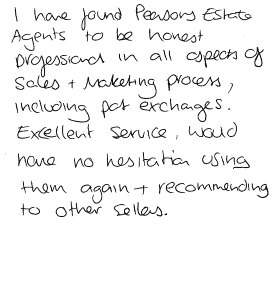 I have found Pearsons Estate
Agents to be honest
professional in all aspects of
Sales + Marketing process,
including part exchanges.
Excellent Service, would
have no hesitation using
them again + recommending
to other sellers.